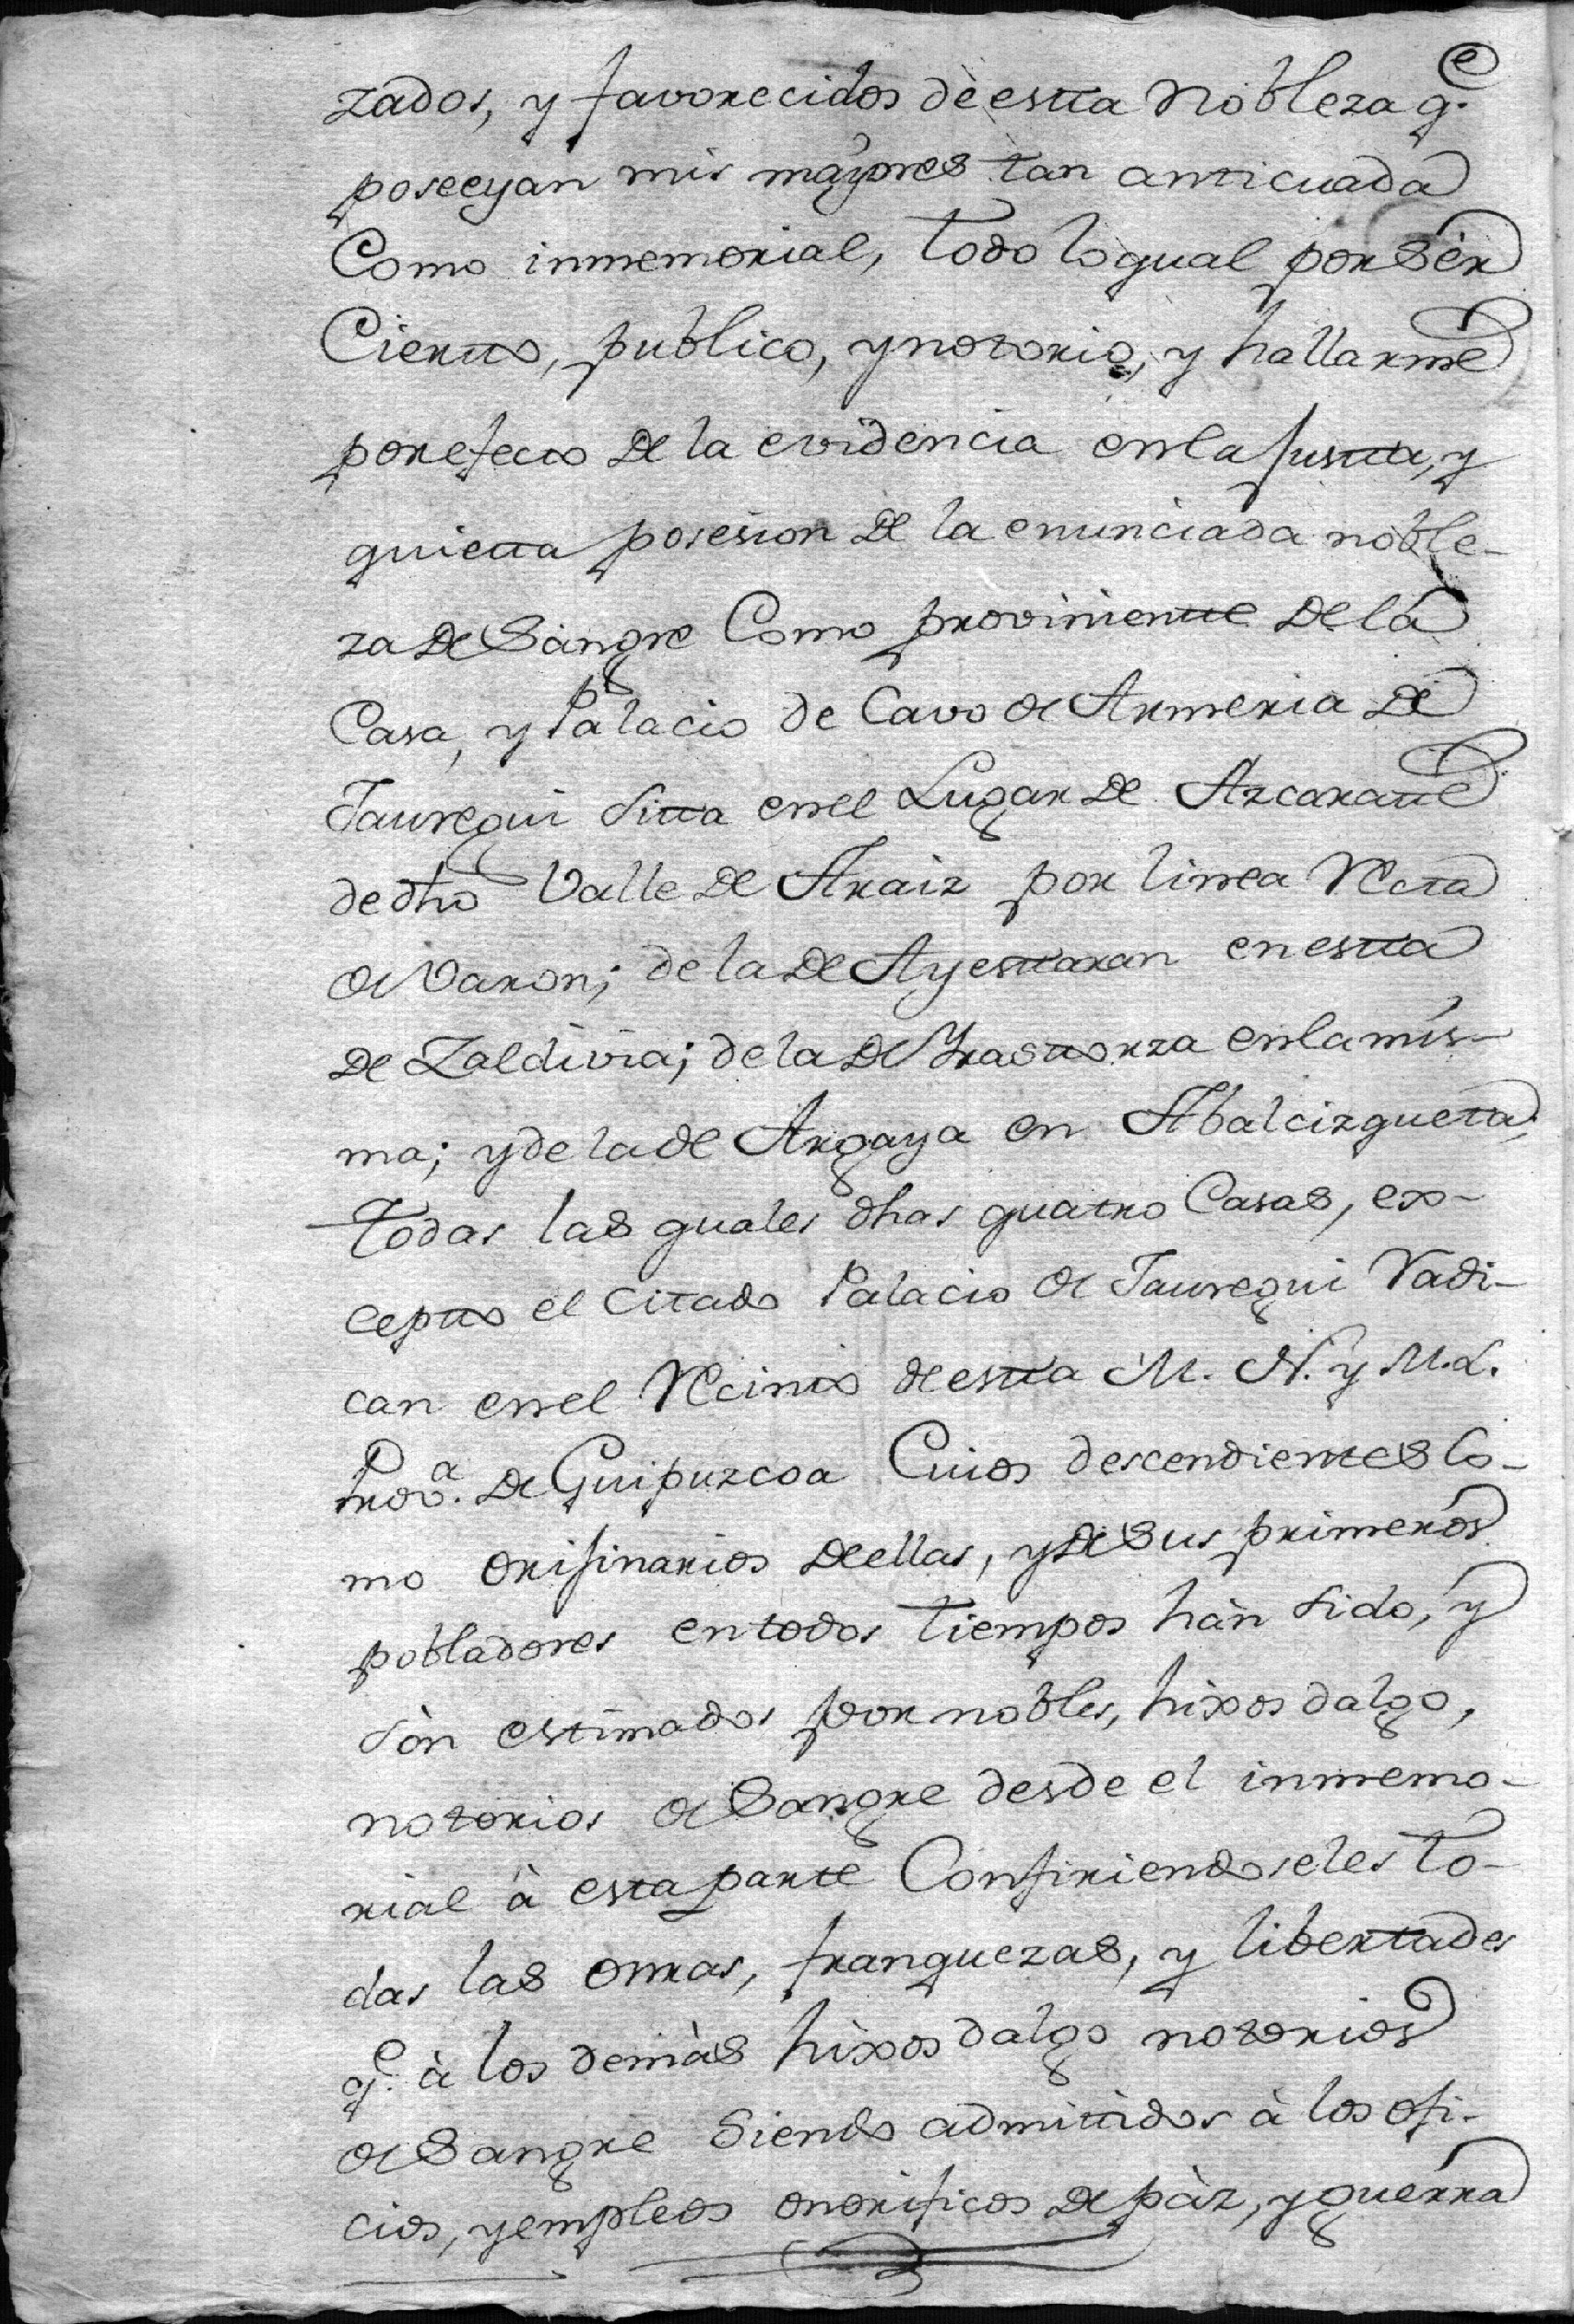 zados, y favorecidos dè estta Nobleza q.e
poseeyan mis mayores tan anticuada
Como inmemorial, todo loqual por Sèr
Ciertto, publico, y notorio, y hallarme
por efecto de la evidencia en la justta, y
quietta posesion de la enunciada noble-
za de Sangre Como proviniente de la
Casa, y Palacio de Cavo de Armeria de
Jauregui sitta en el Lugar de Azcaratte
de dho Valle de Araiz por linea Recta
de Varon; de la de Ayesttaran en estta
de Zaldivia; de la de Yrasttorza en la mis-
ma; y de la de Argaya en Abalcizquetta,
todas las quales dhas quatro Casas, ex-
ceptto el citado Palacio de Jauregui Radi-
can en el Recinto de estta M. N. y M. L.
Prov.a de Guipuzcoa Cuios descendientes co-
mo orijinarios de ellas, y de Sus primeros
pobladores en todos tiempos hàn sido, y
sòn estimados por nobles, hixos dalgo,
notorios de Sangre desde el inmemo-
rial à esta parte Confiriendoseles to-
das las onrras, franquezas, y libertades
q.e à los demàs hixos dalgo notorios
de Sangre Siendo admittidos à los ofi-
cios, y empleos onorificos de pàz, y guerra